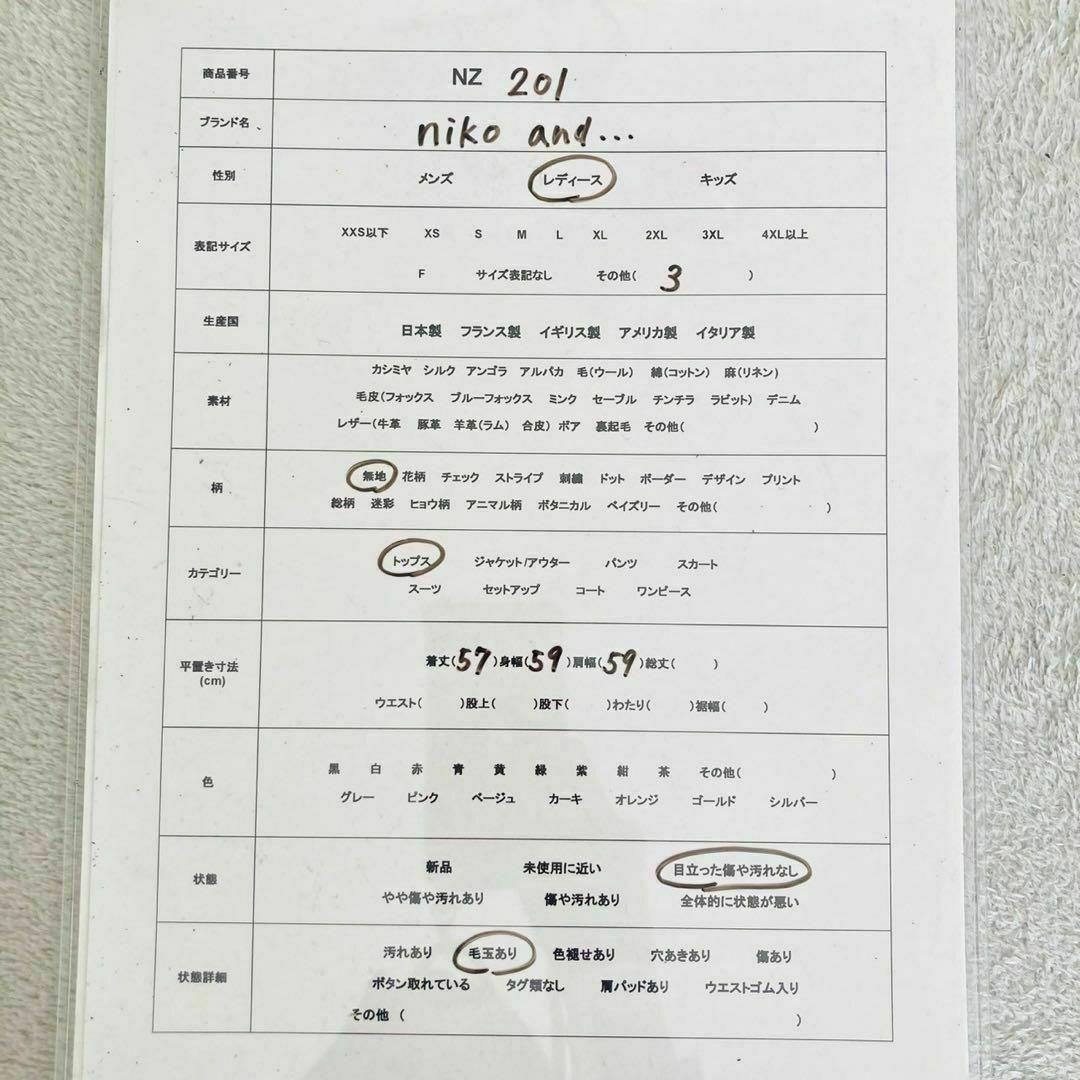 商品番号 NZ 201
ブランド名、 niko and...
性別 メンズ レディース キッズ
表記サイズ XXS以下 XS S M L XL 2XL 3XL 4XL以上
F サイズ表記なし その他( 3 )
生産国 日本製 フランス製 イギリス製 アメリカ製 イタリア製
素材 カシミヤ シルク アンゴラ アルパカ 毛(ウール) 綿(コットン) 麻(リネン)
毛皮(フォックス ブルーフォックス ミンク セーブル チンチラ ラビット) デニム
レザー(牛革 豚革 羊革(ラム) 合皮) ボア 裏起毛 その他( )
柄 無地 花柄 チェック ストライプ 刺繍 ドット ボーダー デザイン プリント
総柄 迷彩 ヒョウ柄 アニマル柄 ボタニカル ペイズリー その他( )
カテゴリー トップス ジャケット/アウター パンツ スカート
スーツ セットアップ コート ワンピース
平置き寸法 (cm) 着丈(57)身幅(59)肩幅(59)総丈( )
ウエスト( )股上( )股下( )わたり( )裾幅( )
色 黒 白 赤 青 黄 緑 紫 紺 茶 その他( )
グレー ピンク ベージュ カーキ オレンジ ゴールド シルバー
状態 新品 未使用に近い 目立った傷や汚れなし
やや傷や汚れあり 傷や汚れあり 全体的に状態が悪い
状態詳細 汚れあり 毛玉あり 色褪せあり 穴あきあり 傷あり
ボタン取れている タグ類なし 肩パッドあり ウエストゴム入り
その他 ( )